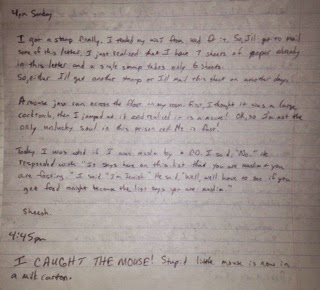 4pm Sunday
I got a stamp finally, I traded my for it. So, I'll get to mail
some of this letter. I just realized that I have 7 sheets of paper already
in this letter and a single stamp takes only 6 sheets.
So, either I'll get another stamp or I'll mail this sheet on another day.
A mouse just ran across the floor in my room. First, I thought it was a large
cockroach, then I jumped at it and realized it is a mouse! Oh, so I'm not the
only unlucky soul in this prison cell. He is first!
Today I was asked if I was muslim by a CO. I said, "No." He
responded with "It says here on this list that you are muslim & you
are fasting." I said "I'm Jewish." He said, "Well, we'll have to see if you
get food tonight because the list says you are muslim."
Sheesh.
4:45pm
I CAUGHT THE MOUSE! Stupid little mouse is now in
a milk carton.